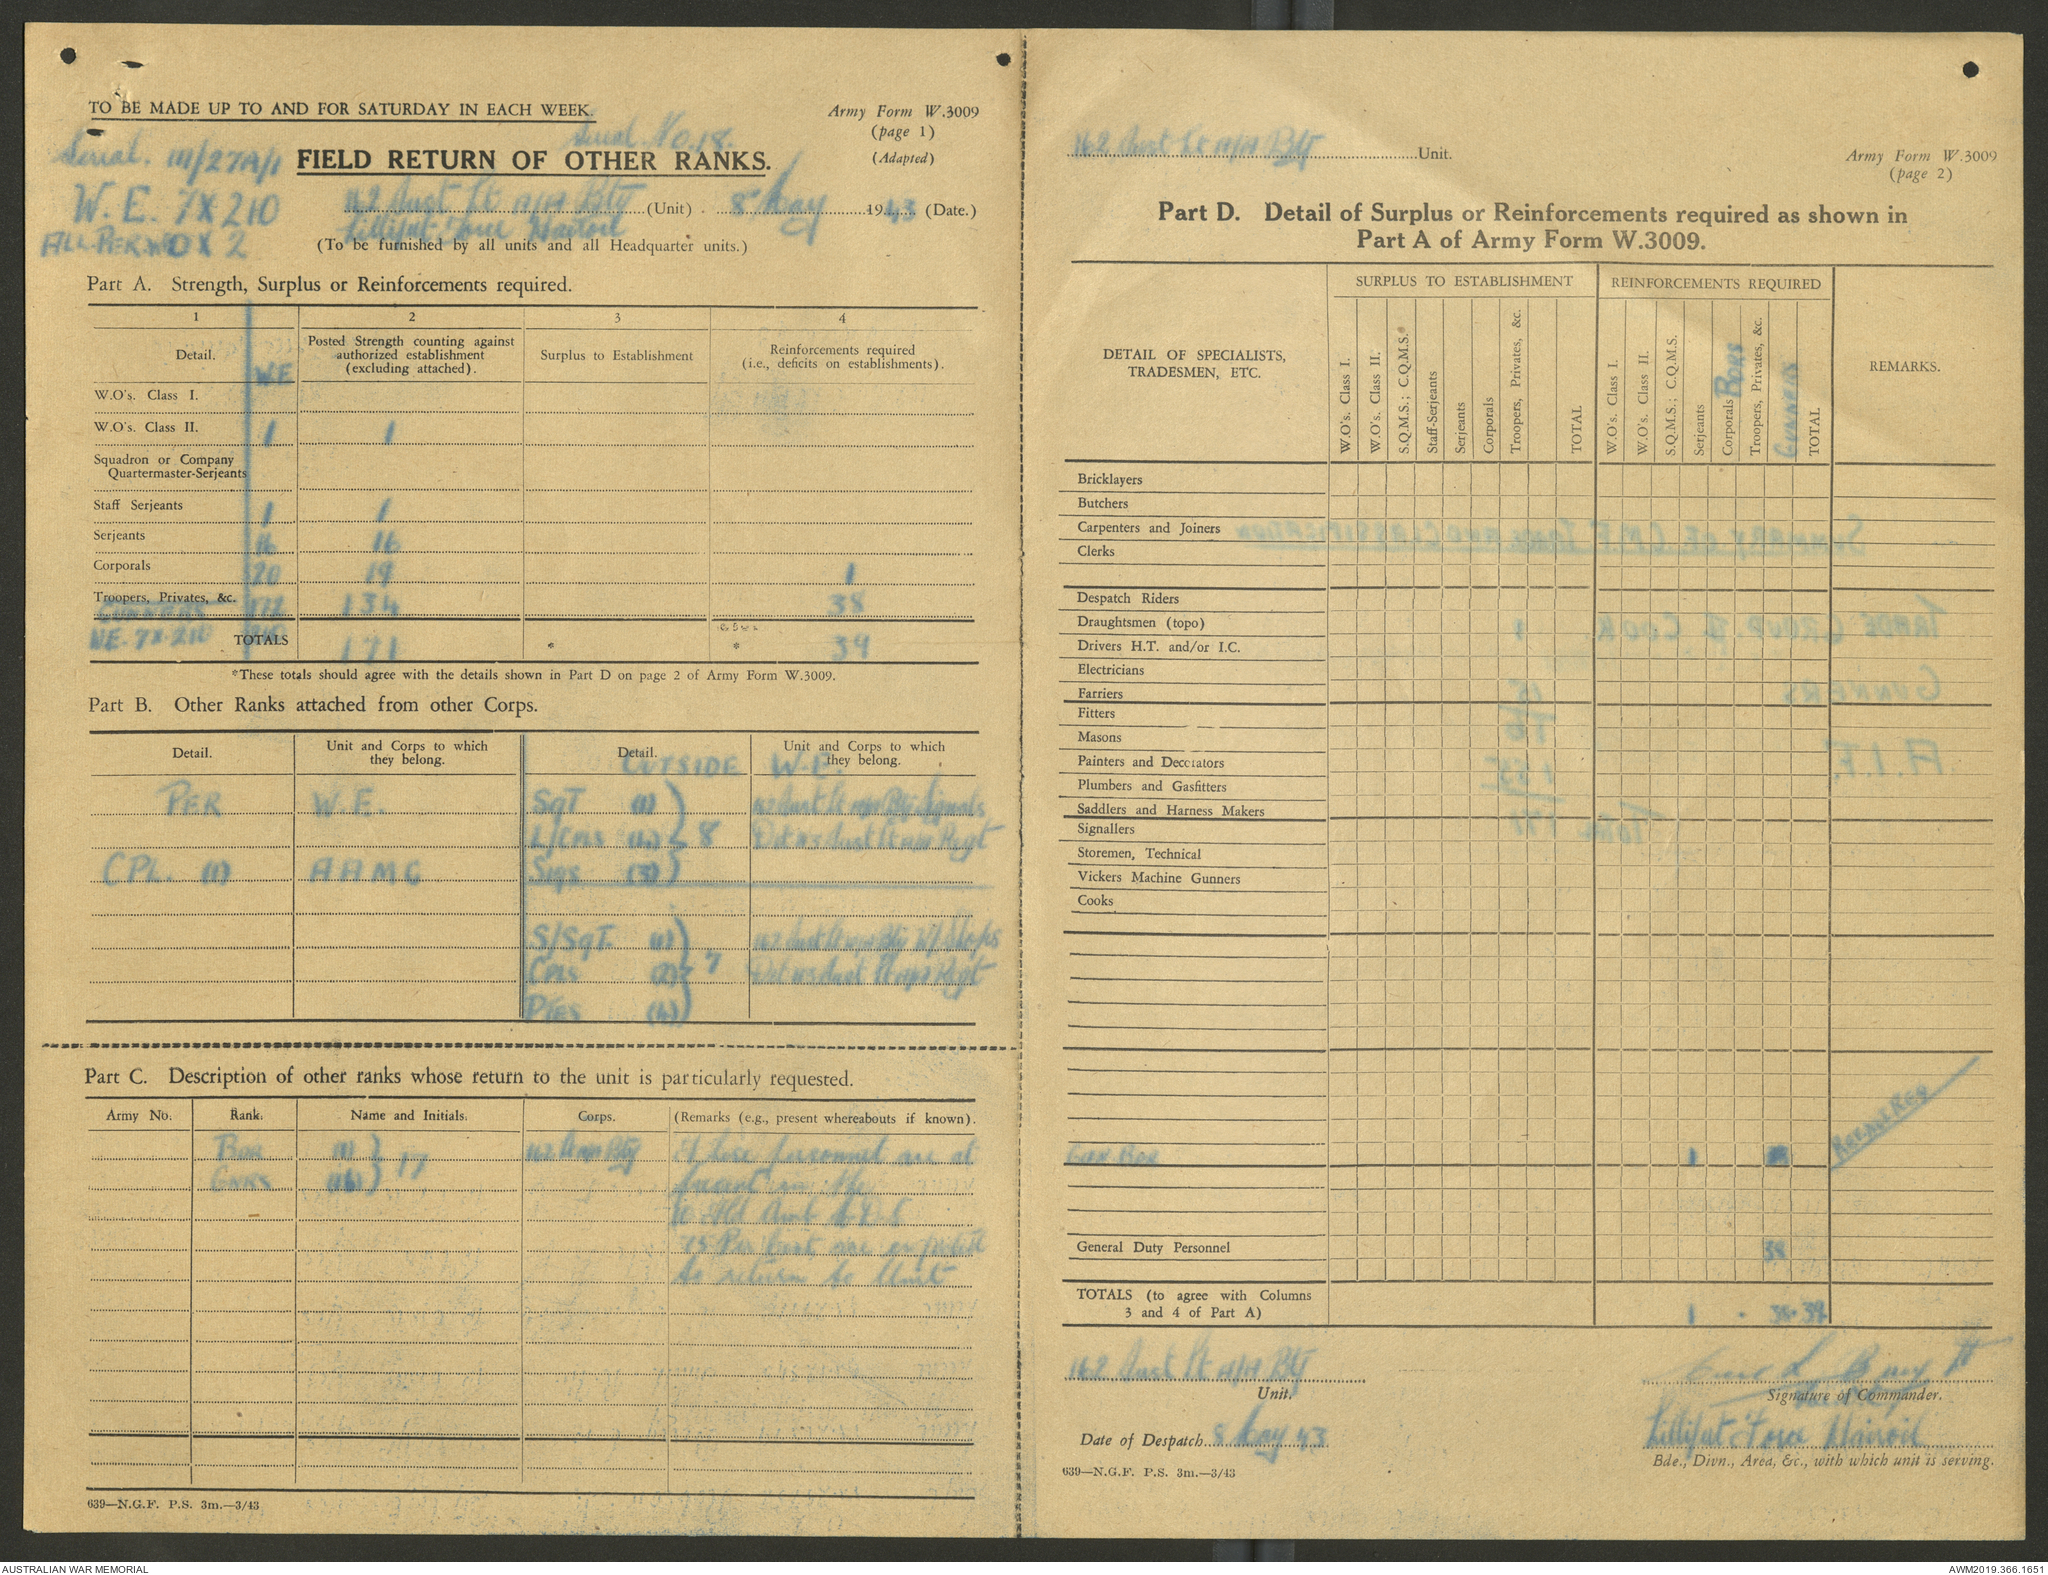 TO BE MADE UP TO AND FOR SATURDAY IN EACH WEEK.
Army Form W.3009
(page 1)
(Adapted)
Serial No. 18.
Serial. 111/27A/1
FIELD RETURN OF OTHER RANKS.
W.E. 7X210
162 Aust Lt A/A Bty (Unit) 8 May 1943 (Date.)
Lilliput Force Nairoil
0 X 2
(To be furnished by all units and all Headquarter units.)
Part A. Strength, Surplus or Reinforcements required.
1 2 3 4
Detail. W.E Posted Strength counting against authorized establishment (excluding attached). Surplus to Establishment Reinforcements required (i.e., deficits on establishments).
W.O's. Class I.
W.O's. Class II. 1 1
Squadron or Company
Quartermaster-Serjeants
Staff Serjeants 1 1
Serjeants 16 16
Corporals 20 19 1
Troopers, Privates, &c. 172 134 38
GUNNERS
WE. 7X210 TOTALS 210 171 * * 39
*These totals should agree with the details shown in Part D on page 2 of Army Form W.3009.
Part B. Other Ranks attached from other Corps.
Detail. Unit and Corps to which they belong. Detail. Unit and Corps to which they belong.
OUTSIDE W.E.
PER W.E. SgT (1) 162 Aust Lt A/A Bty Signals
L/Cpls (4) 8 Det Aust Lt A/A Regt
CPL. (1) AAMC Sigs (3)
S/SgT. (1) 162 Aust Lt A/A Bty W/Shops
Cpls (2) 7 Det Aust Lt A/A Regt
Ptes (4)
Part C. Description of other ranks whose return to the unit is particularly requested.
Army No. Rank. Name and Initials. Corps. (Remarks (e.g., present whereabouts if known).
Bdr (1) 17 162 Lt A/A Bty These personnel are at
GNRS (16) present in the
75 Per Cent are expected
to return to Unit
639—N.G.F. P.S. 3m.—3/43
162 Aust Lt A/A Bty Unit.
Army Form W.3009
(page 2)
Part D. Detail of Surplus or Reinforcements required as shown in
Part A of Army Form W.3009.
DETAIL OF SPECIALISTS, TRADESMEN, ETC.
SURPLUS TO ESTABLISHMENT
W.O's. Class I.
W.O's. Class II.
S.Q.M.S.; C.Q.M.S.
Staff-Serjeants
Serjeants
Corporals
Troopers, Privates, &c.
TOTAL
REINFORCEMENTS REQUIRED
W.O's. Class I.
W.O's. Class II.
S.Q.M.S.; C.Q.M.S.
Serjeants
Corporals BDRS
Troopers, Privates, &c.
GUNNERS
TOTAL
REMARKS.
Bricklayers
Butchers
Carpenters and Joiners
Clerks
Despatch Riders
Draughtsmen (topo)
Drivers H.T. and/or I.C.
Electricians
Farriers
Fitters
Masons
Painters and Decorators
Plumbers and Gasfitters
Saddlers and Harness Makers
Signallers
Storemen, Technical
Vickers Machine Gunners
Cooks
Bdr 1
General Duty Personnel 38
TOTALS (to agree with Columns
3 and 4 of Part A) 1 . 38 . 39
162 Aust Lt A/A Bty
Unit.
Signature of Commander.
Date of Despatch 8 May 43
Lilliput Force Nairoil
Bde., Divn., Area, &c., with which unit is serving.
639—N.G.F. P.S. 3m.—3/43
AUSTRALIAN WAR MEMORIAL
AWM2019.366.1651